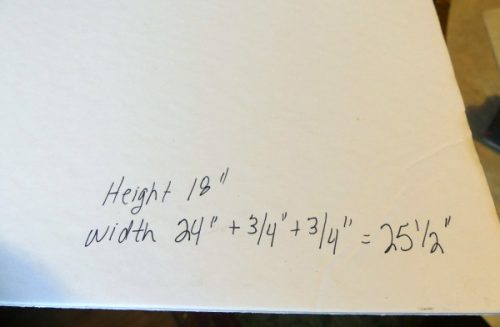 Height 18"
width 24" + 3/4" + 3/4" = 25 1/2"